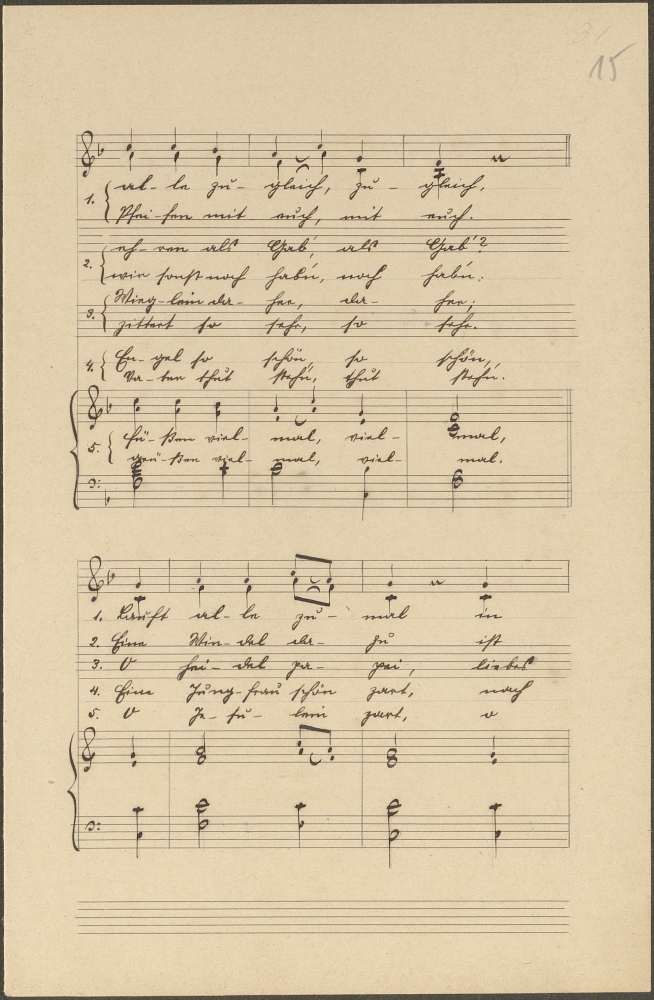 15
1. al- le zu- gleich, zu- gleich,
Pfei-fen mit euch, mit euch.
2. eh- ren als Gab', als Gab'?
wir sonst noch hab'n, noch hab'n:
3. Wieg-lein da- her, da- her;
zittert so sehr, so sehr.
4. En- gel so schön, so schön,
Va- ter thut steh'n, thut steh'n.
5. Fü- ßen viel- mal, viel- mal,
grü-ßen viel- mal, viel- mal.
1. Lauft al- le zu- mal in
2. Eine Win- del da- zu ist
3. O hei- del pa- pei, liebes
4. Eine Jung-frau schön zart, nach
5. O Je- su- lein zart, o